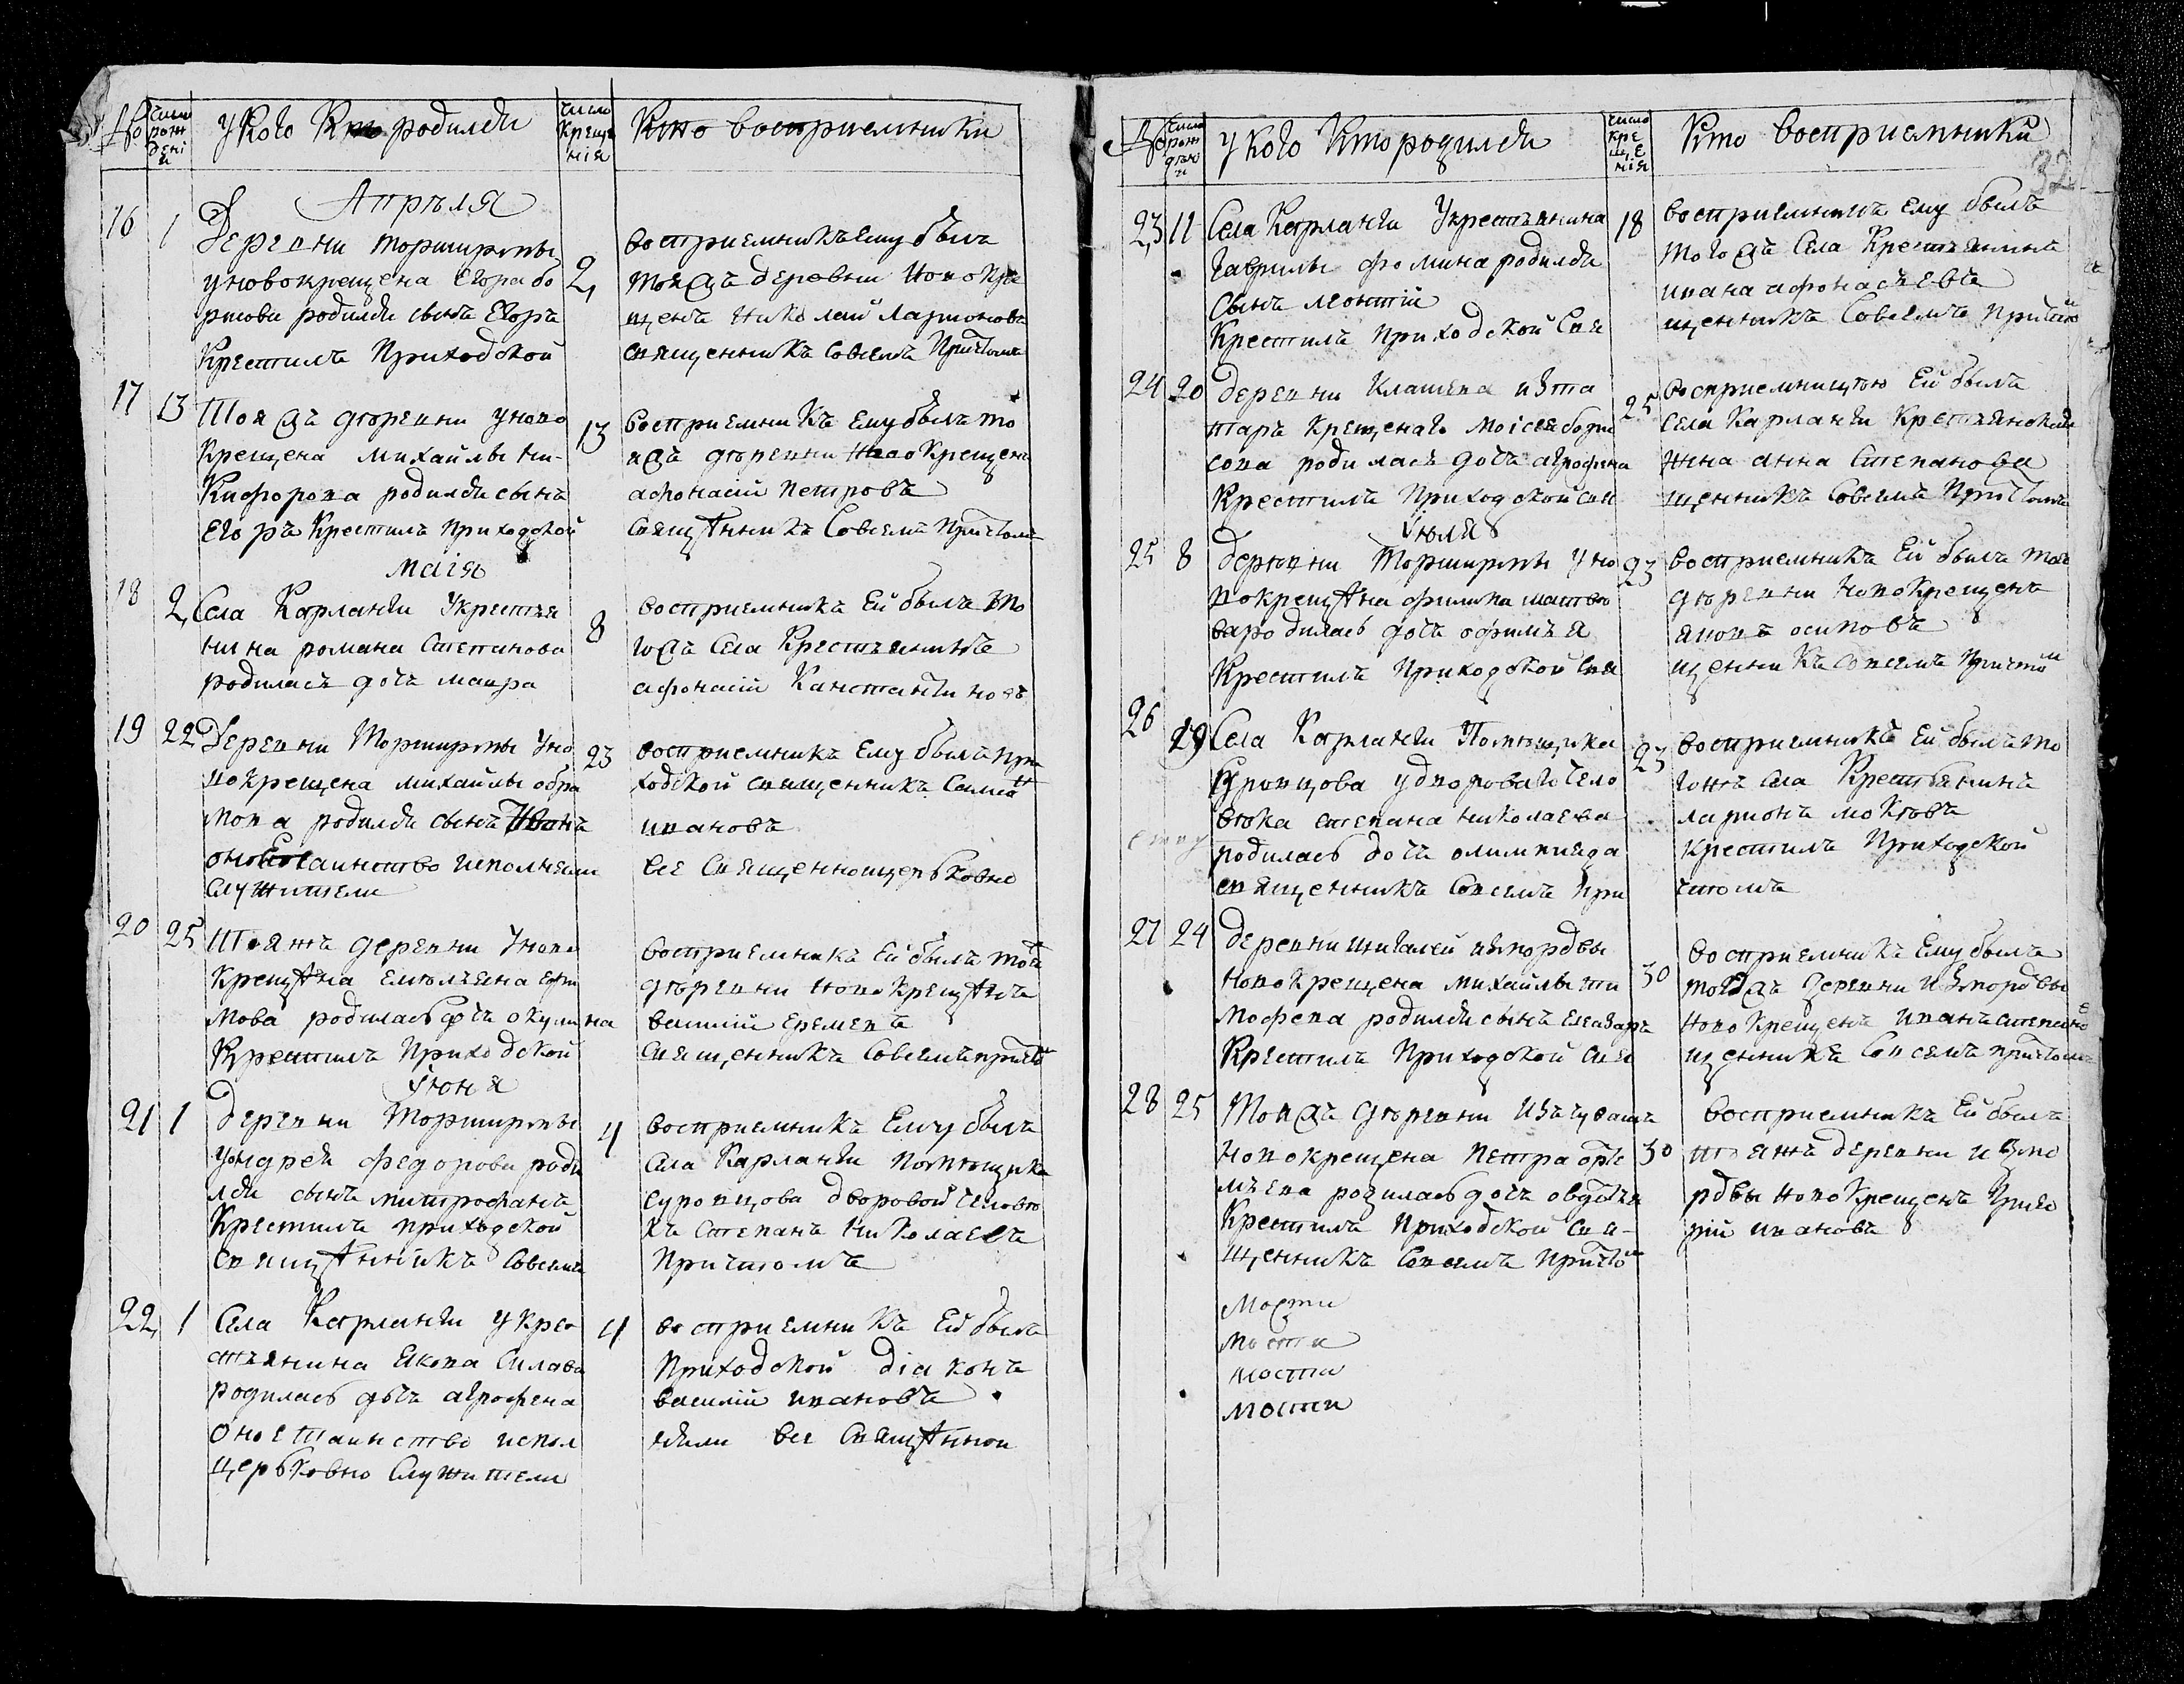 №
число рожденiя
У кого кто родился
число крещенiя
Кто восприемники
Апреля
16
1
Деревни Торширмы
у новокрещена Егора бо
рисова родился сынъ Егоръ
Крестилъ Приходской
2
восприемникъ ему былъ
тояжъ деревни новокре
щенъ Николай Ларионовъ
священникъ совсемъ Притчомъ
17
13
Тояжъ деревни у ново
Крещена михайлы ни-
кифорова родился сынъ
Егоръ Крестилъ приходской
13
восприемникъ ему былъ то
яжъ деревни новокрещенъ
афонасiй петровъ
священникъ Совсемъ Притчомъ
Маiя
18
2
Села Карланги У крестья
нина романа Степанова
родилась дочь мавра
8
восприемникъ Ей былъ то
гожъ Села Крестьянинъ
афонасiй Канстантиновъ
19
22
Деревни Торширмы У но
вокрещена михайлы обра
мова родился сынъ Иванъ
оное таинство исполнили
служители
23
восприемникъ ему былъ при
ходской священникъ Симио
ивановъ
все Священноцерьковно
20
25
Тояжъ деревни У ново
крещена емельяна ефи
мова родилась дочь окулина
Крестилъ Приходской
восприемникъ Ей былъ тоя
деревни новокрещенъ
василiй Еремевъ
священникъ Совсемъ притчо
Июня
21
1
Деревни Торширмы
у андрея федорова роди
лся сынъ митрофанъ
Крестилъ приходской
священникъ Совсемъ
4
восприемникъ Ему былъ
Села Карланги помещика
Суровцова дворовой челове
къ Степанъ Николаевъ
Притчомъ
22
1
Села Карланги У кре
стьянина Якова Силава
родилась дочь агрофена
оное таинство испол
церьковно Служители
4
восприемникъ Ей былъ
Приходской дiаконъ
василiй ивановъ
няли все Священнои
№
число рождени
У кого Кто родился
число крещенiя
Кто восприемники
32
23
11
Села Карланги У крестьянина
гаврилы фомина родился
Сынъ леонтiй
Крестилъ приходской Свя
18
восприемникъ ему былъ
тогожъ Села Крестьянинъ
иванъ афонасьевъ
щенникъ Совсемъ притчо
24
20
Деревни Клашева изъ та
таръ крещенаго Моiсея бори
сова родилась дочь агрофена
Крестилъ Приходской свя
25
восприемницею Ей была
Села Карланги Крестьянская
жена анна Степанова
щенникъ Совсемъ Притчомъ
Июля
25
8
деревни Торширмы У но
вокрещена филипа матве
ва родилась дочь офимья
Крестилъ Приходской Свя
23
восприемникъ Ей былъ тояж
деревни новокрещенъ
яковъ осиповъ
щенникъ совсемъ притчом
26
19
Села Карланги Помещика
Суровцова у дворового чело
века степана николаева
родилась дочь олимпияда
священникъ Совсемъ при
23
восприемникъ Ей былъ то
гожъ Села Крестьянинъ
ларионъ моквовъ
крестилъ Приходской
чтомъ
27
24
деревни шигалей из мордвы
новокрещена михайлы ти
мофева родился сынъ Елеазаръ
Крестилъ Приходской Свя
30
восприемникъ Ему былъ
тояжъ деревни из мордвы
новокрещенъ иванъ степано
щенникъ Совсемъ притчомъ
28
25
Тояжъ деревни изъ чувашъ
новокрещена петра арте
мьева родилась дочь овдотья
Крестилъ Приходской Свя-
щенникъ Совсемъ притчо
30
восприемникъ Ей былъ
тояжъ деревни из мо
рдвы новокрещенъ григо
рiй ивановъ
Мости
мости
мости
мости